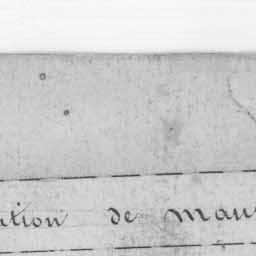 ation de mau